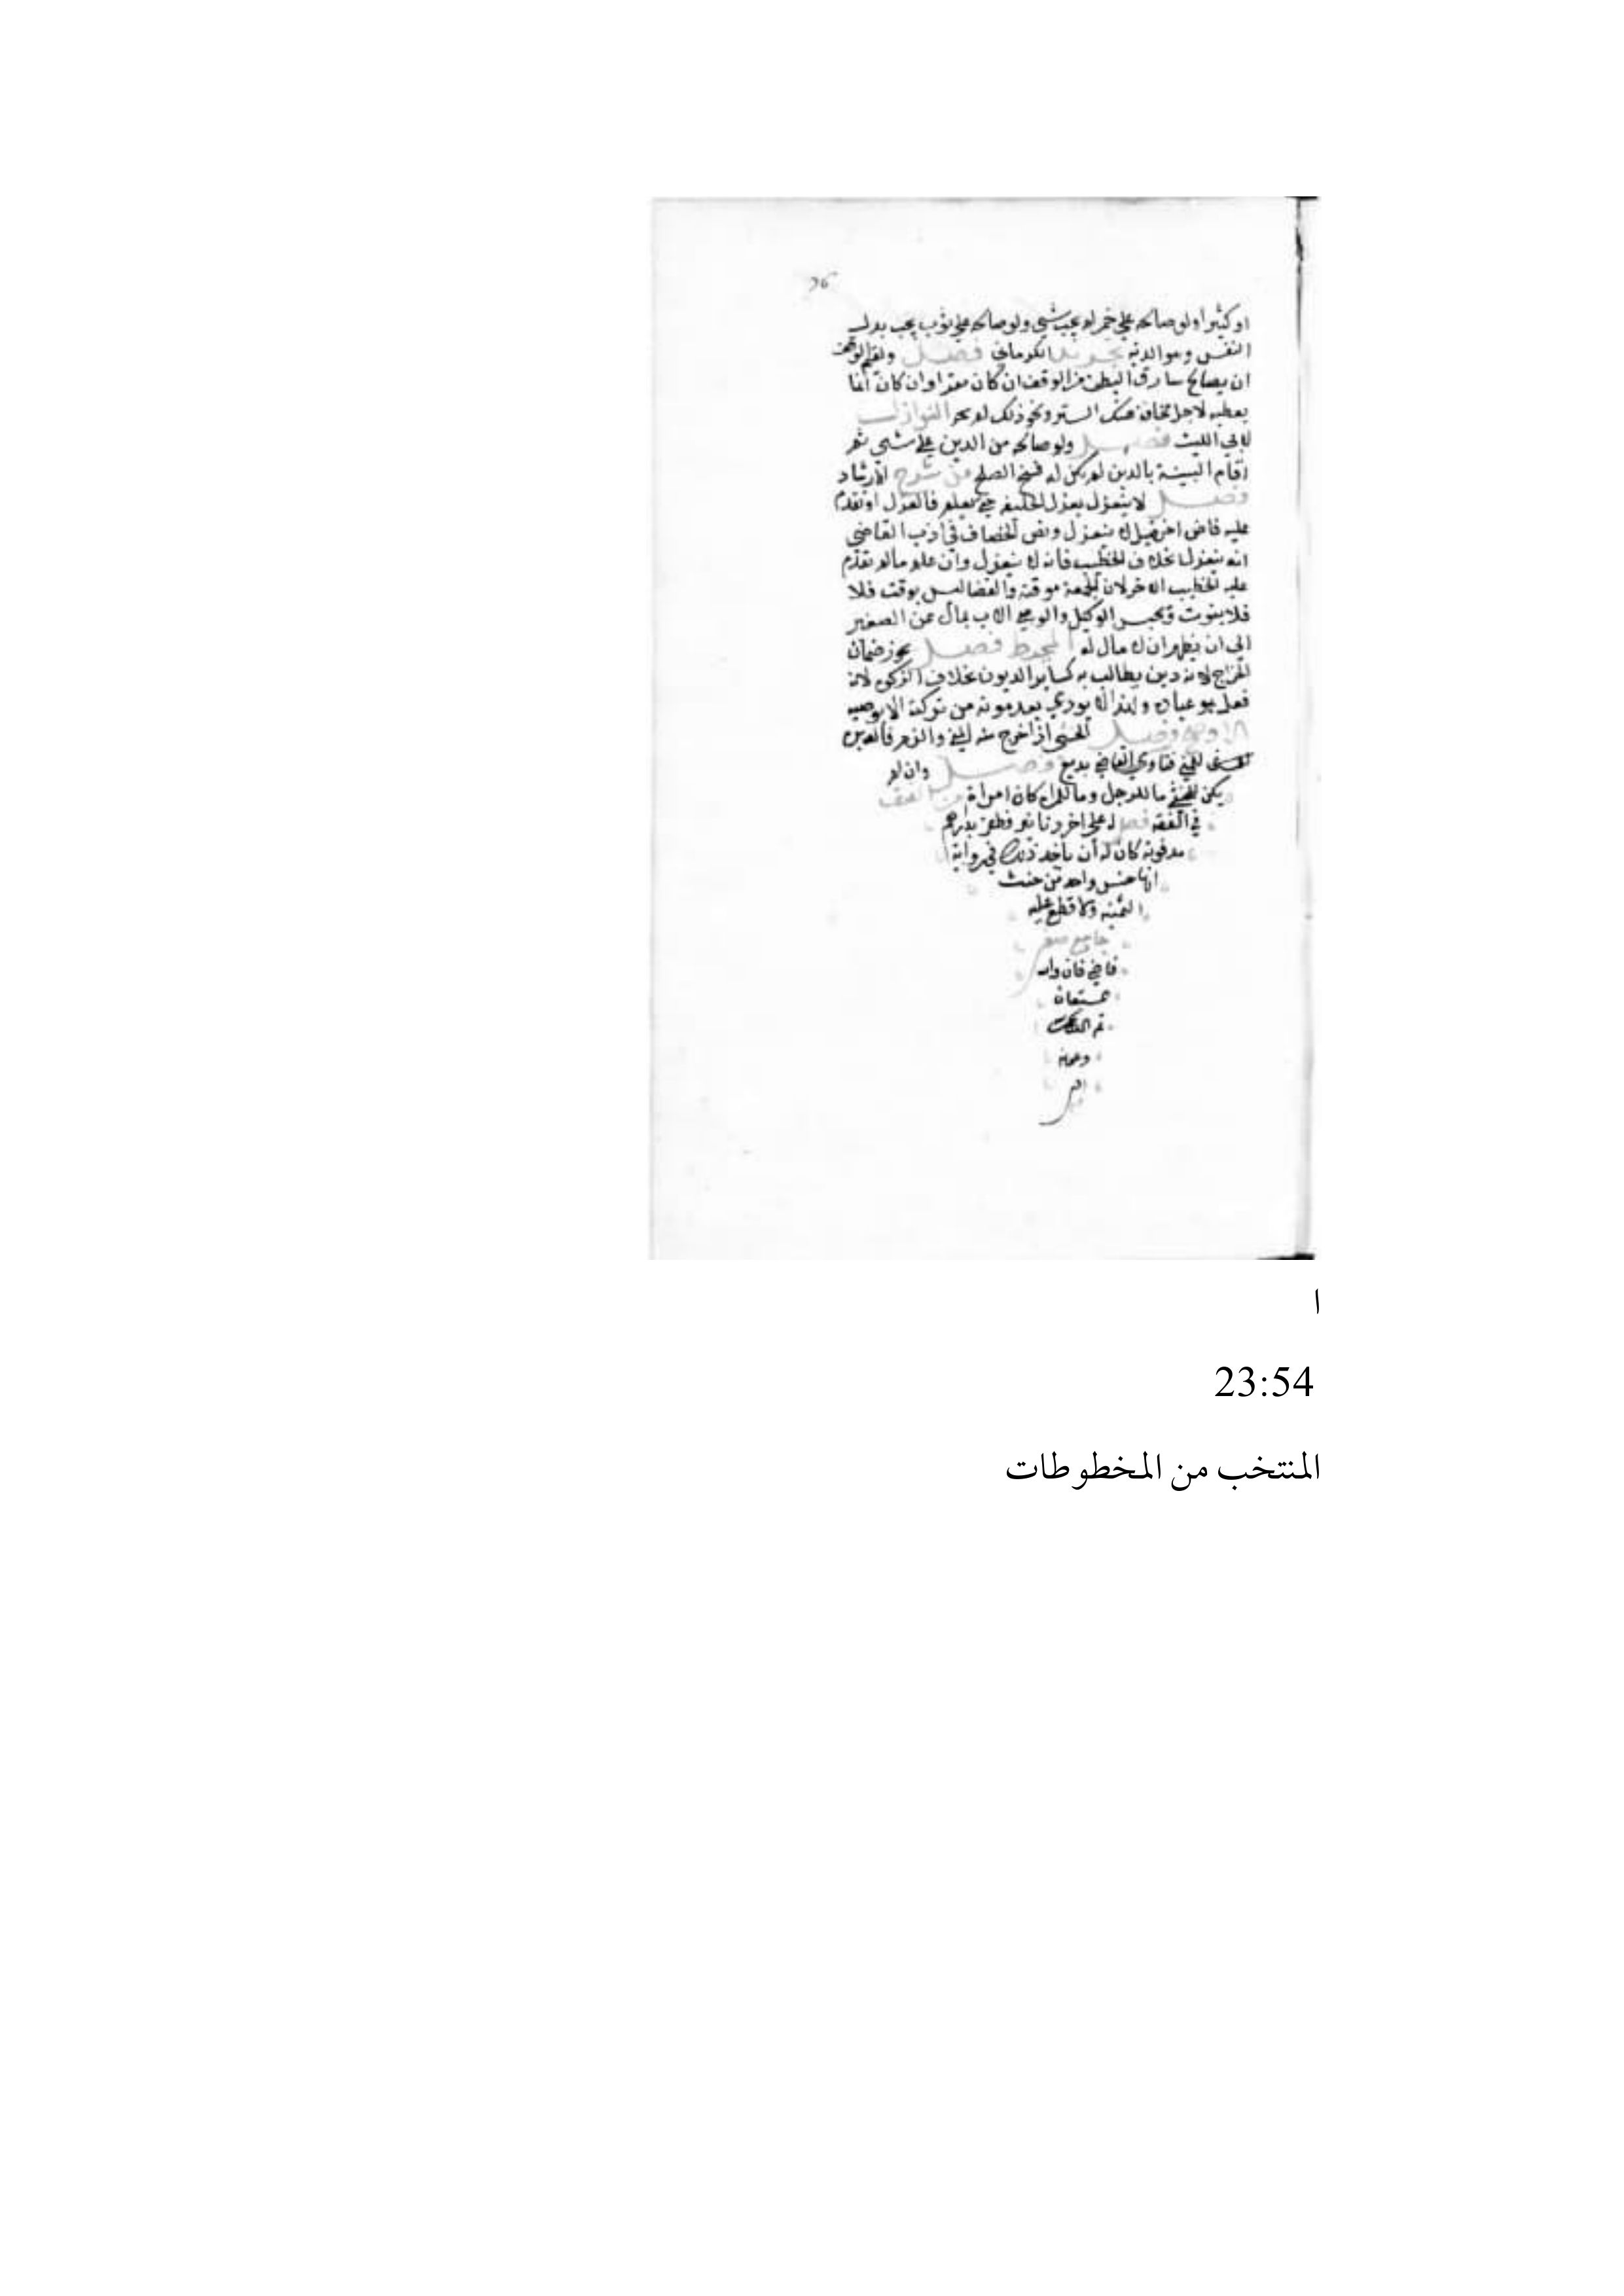 او كثيرا ولو صالحه علي خمر لم يجب شي ولو صالحه علي ثوب يجب بدل
النفس وهو الدية الكرماني فصل ولقيم الوقف
ان يصالح سارق من الوقف ان كان مقرا وان كان
يعطيه لاجل مخافة هتك الستر ونحو ذلك لم يجز النوازل
لابي الليث فصل ولو صالحه من الدين علي شي ثم
اقام البينة بالدين لم يكن له فسخ الصلح من شرح الارشاد
فصل لا ينعزل بعزل الخليفة حتي يعلم فالعزل او تقدم
عليه قاض اخر قبل لا ينعزل ونص الخصاف في ادب القاضي
انه ينعزل بخلاف الخطيب فانه لا ينعزل وان علم مالم يقدم
عليه الخطيب الاخر لان الجمعة موقتة والقضا ليس بوقت فلا
فلا يفوت ويحبس الوكيل والوصي الاب بمال عن الصغير
الي ان يظهر ان لا مال له المحيط فصل يجوز ضمان
الخراج لانه دين يطالب به كساير الديون بخلاف الزكوة لانه
فعل هو عبادة ولهذا لا يودي بعد موته من تركته الا بوصية
فصل الخنثي اذا خرج منه المني والدم
فتاوي القاضي بديع فصل وان لم
يكن للخنثي ما للرجل وما للمراة كان امراة
في الفقه فصل له علي اخر دنانير فظفر بدراهم
مدفونة كان له ان ياخذ ذلك في رواية
انها جنس واحد من حيث
الثمنية ولا قطع عليه
جامع صغير
قاضي خان والله
المستعان
تم الكتاب
ا
23:54
المنتخب من المخطوطات